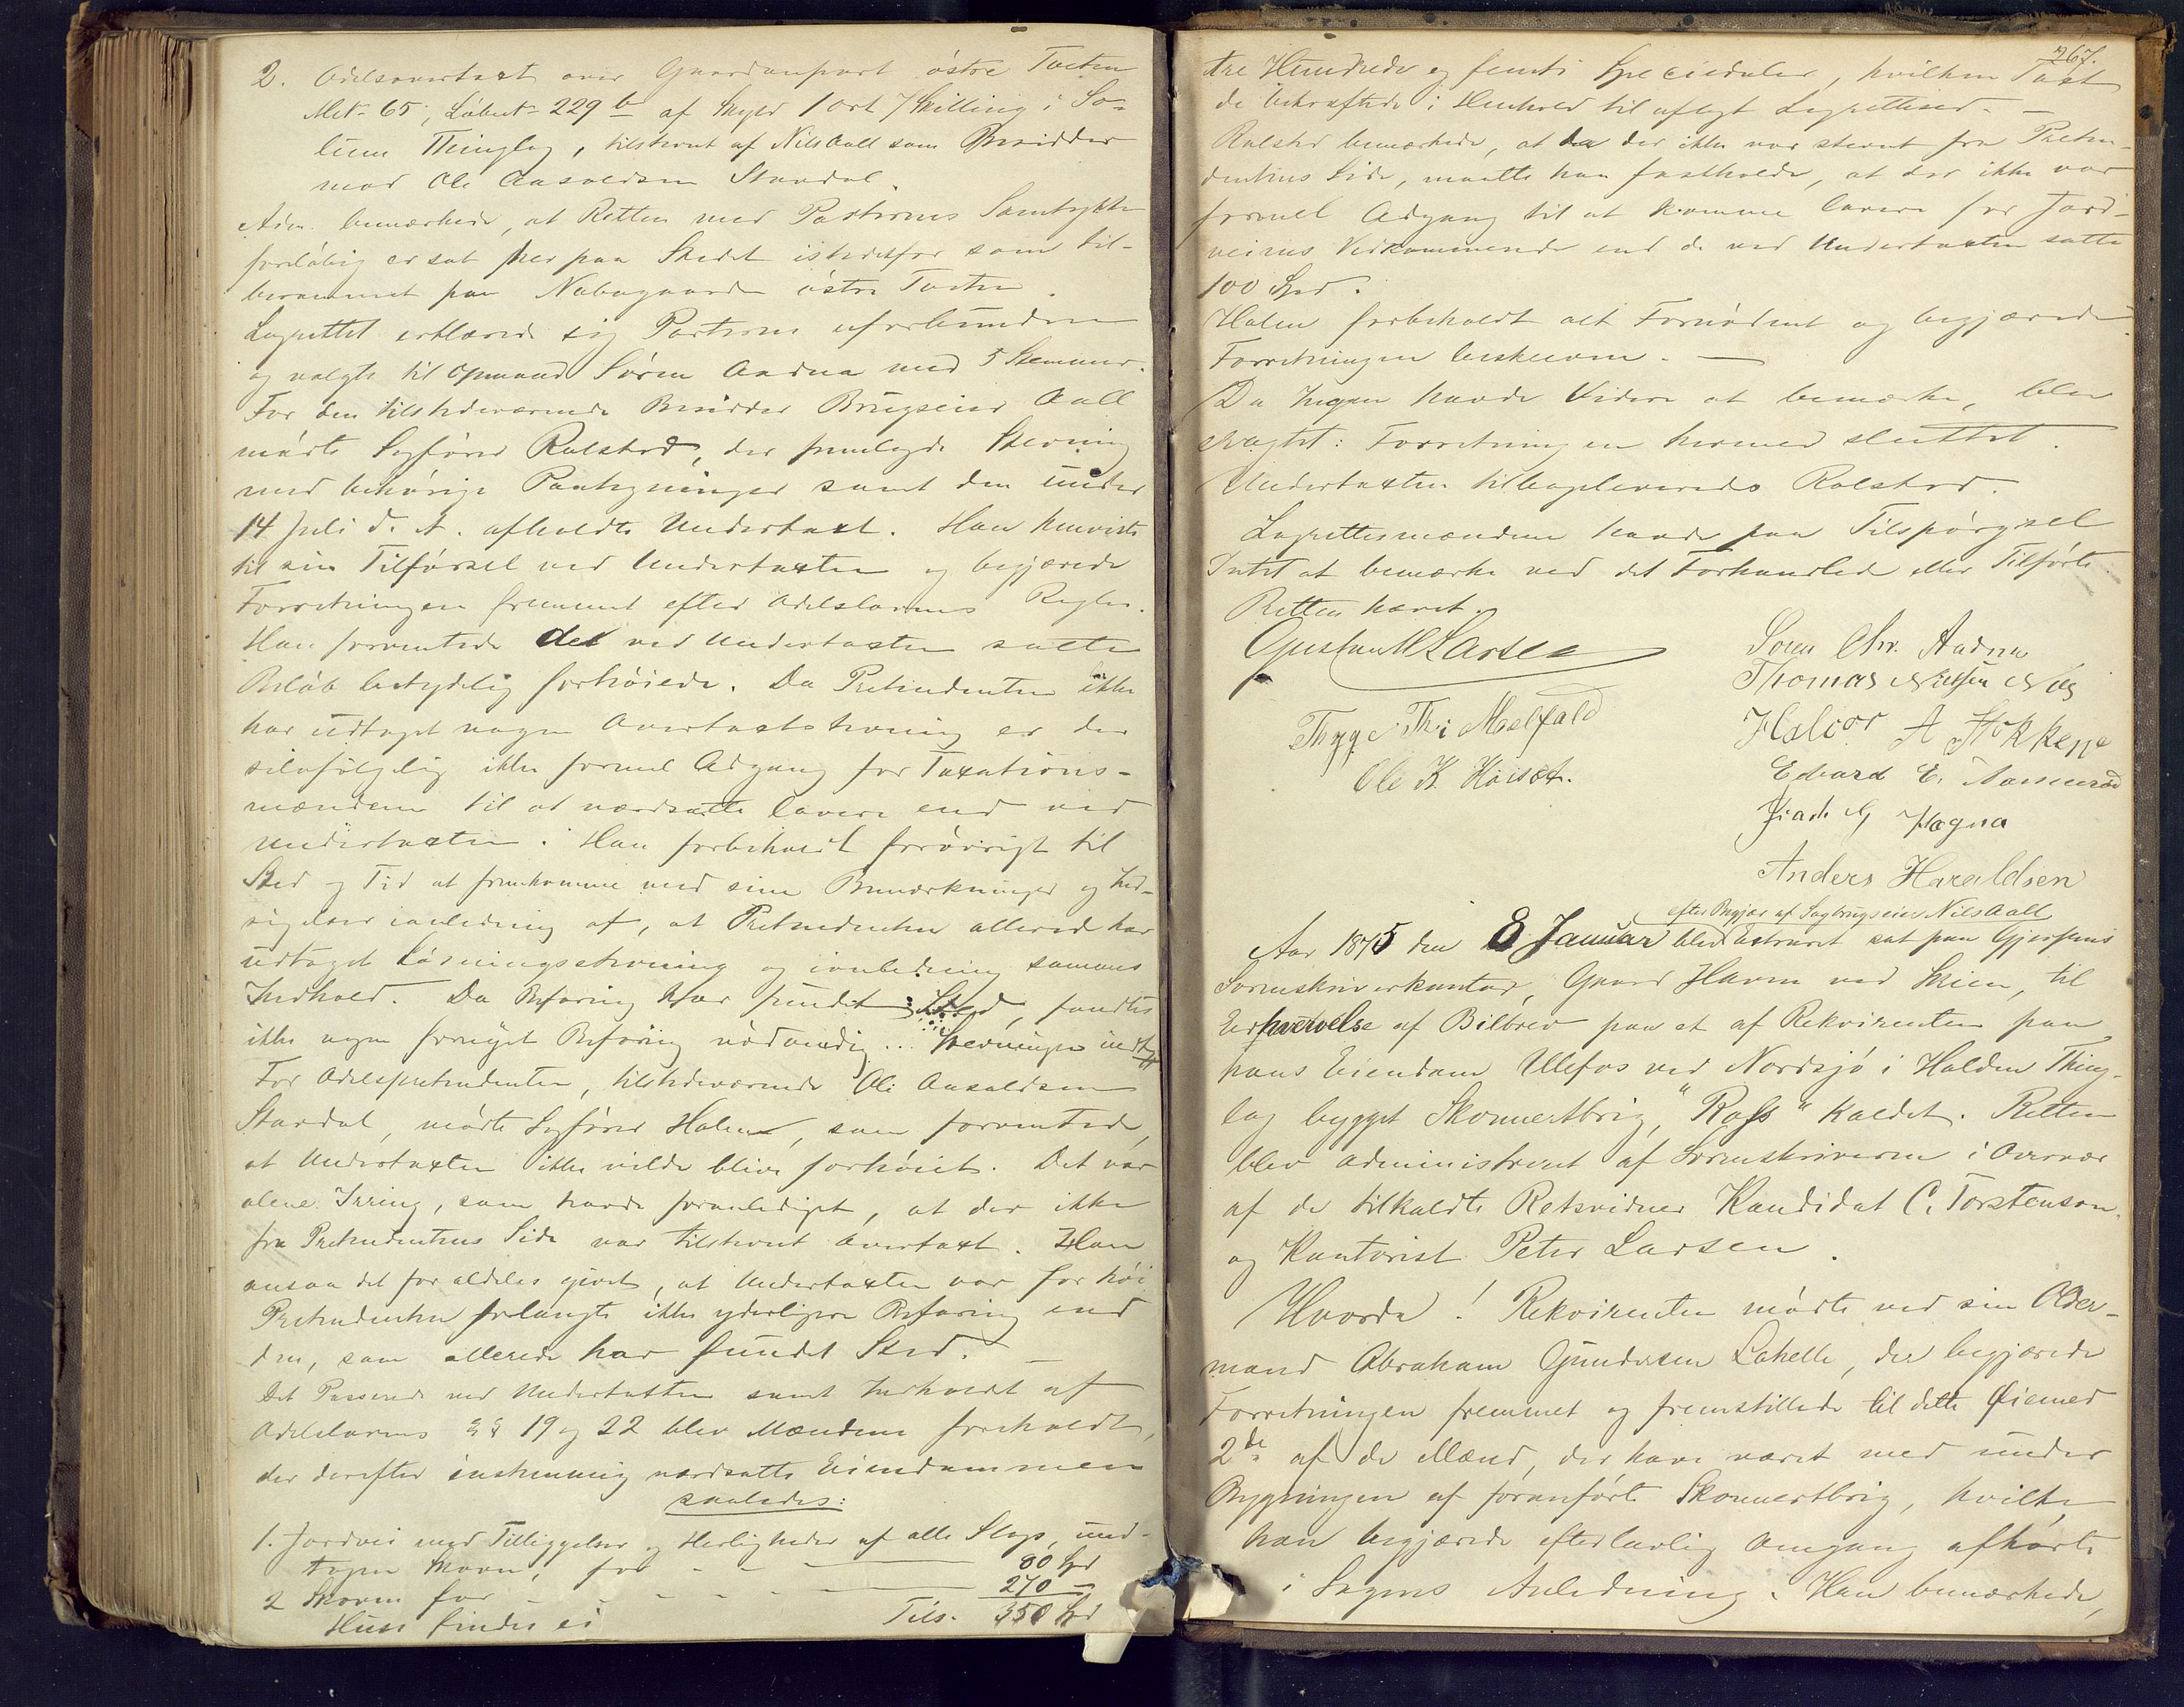 2. Odelsovertaxt over Gaardenpart østre Toeten
Mt. 65, Løbent. 229 b af Skyld 1 ort 7 Skilling i So-
lum Thinglag, tilstevnt af Nils Aall som Besidder
mod Ole Aasoldsen Stavdal.
Adm. bemærkede, at Retten med Parternes Samtykke
foreløbig er sat her paa Stedet istedetfor som til-
berammet paa Nabogaarden østre Toeten.
Lagrettet erklærede sig Parterne uforbunden
og valgte til Opmand Søren Aadna med 5 Stemmer.
For den tilstedeværende Besidder Brugseier Aall
mødte Sagfører Rolstad, der fremlagde Stevning
med behørige Paategninger samt den under
14 Juli d. A. afholdte Undertaxt. Han henviste
til sin Tilførsel ved Undertaxten og begjærede
Forretningen fremmet efter Odelslovens Regler.
Han forventede det ved Undertaxten satte
Beløb betydelig forhøiede. Da Prætendenten ikke
har udtaget nogen Overtaxtstevning er der
selvfølgelig ikke formel Adgang for Taxations-
mændene til at værdsætte lavere end ved
Undertaxten. Han forbeholdt forøvrigt til
Sted og Tid at fremkomme med sine Bemærkninger og Ind-
sigelser i anledning af, at Prætendenten allerede har
udtaget Løsningsstevning og i anledning sammes
Indhold. Da Befaring har fundet Sted, fandtes
ikke nogen fornyet Befaring nødvendig... Stevningen indt.
For Odelsprætendenten, tilstedeværende Ole Aasoldsen
Stavdal, mødte Sagfører Holm, som forventede,
at Undertaxten ikke vilde blive forhøiet. Det var
alene Irring, som havde foranlediget, at der ikke
fra Prætendentens Side var tilstevnt Overtaxt. Han
ansaa det for aldeles givet, at Undertaxten var for høi
Prætendenten forlangte ikke yderligere Befaring end
den, som allerede har fundet Sted. —
Det Passerede ved Undertaxten samt Indholdt af
Odelslovens §§ 19 og 22 blev Mændene foreholdt,
der derefter enstemmig værdsatte Eiendommen
saaledes:
1. Jordvei med Tilliggelser og Herligheder af alle Slags, und-
tagen Skoven, for - - 80 Spd
2 Skoven for - - - - 270 —
Huse findes ei Tils. 350 Spd
267.
tre Hundrede og femti Speciedaler, hvilken Taxt
de bekræftede i Henhold til aflagt Lagretteed. —
Rolstad bemærkede, at da der ikke var stevnt fra Præten-
dentens Side, maatte han fastholde, at der ikke var
formel Adgang til at komme lavere for Jord-
veiens Vedkommende end de ved Undertaxten satte
100 Spd.
Holm forbeholdt alt Fornødent og begjærede
Forretningen beskreven. —
Da Ingen havde Videre at bemærke, blev
eragtet: Forretningen hermed sluttet.
Undertaxten tilbageleveredes Rolstad.
Lagrettesmændene havde paa Tilspørgsel
Intet at bemærke ved det Forhandlede eller Tilførte.
Retten hævet.
Gustav M Larsen
Søren Chr. Aadna
Thomas Nilsen Næs
Thyge Th: Melfald
Halvor A Stokken
Ole K. Høisæt.
Edvard E.
Hogna
Anders Haraldsen
efter Begjær af Sagbrugseier Nils Aall
Aar 1875 den 8 Januar blev Extraret sat paa Gjerpens
Sorenskriverkontor, Gaard Haven ved Skien, til
Erhvervelse af Bilbrev paa et af Rekvirenten paa
hans Eiendom Ulefos ved Nordsjø i Holden Thing-
lag bygget Skonnertbrig, "Ross" kaldet. Retten
blev administreret af Sorenskriveren i Overvær
af de tilkaldte Retsvidner Kandidat C. Torstenson
og Kontorist Peter Larsen.
Hvorda! Rekvirenten mødte ved sin Older-
mand Abraham Gundersen Lahelle, der begjærede
Forretningen fremmet og fremstillede til dette Øiemed
2de af de Mænd, der have været med under
Bygningen af foranførte Skonnertbrig, hvilke
han begjærede efter lovlig Omgang afhørte
i Sagens Anledning. Han bemærkede,